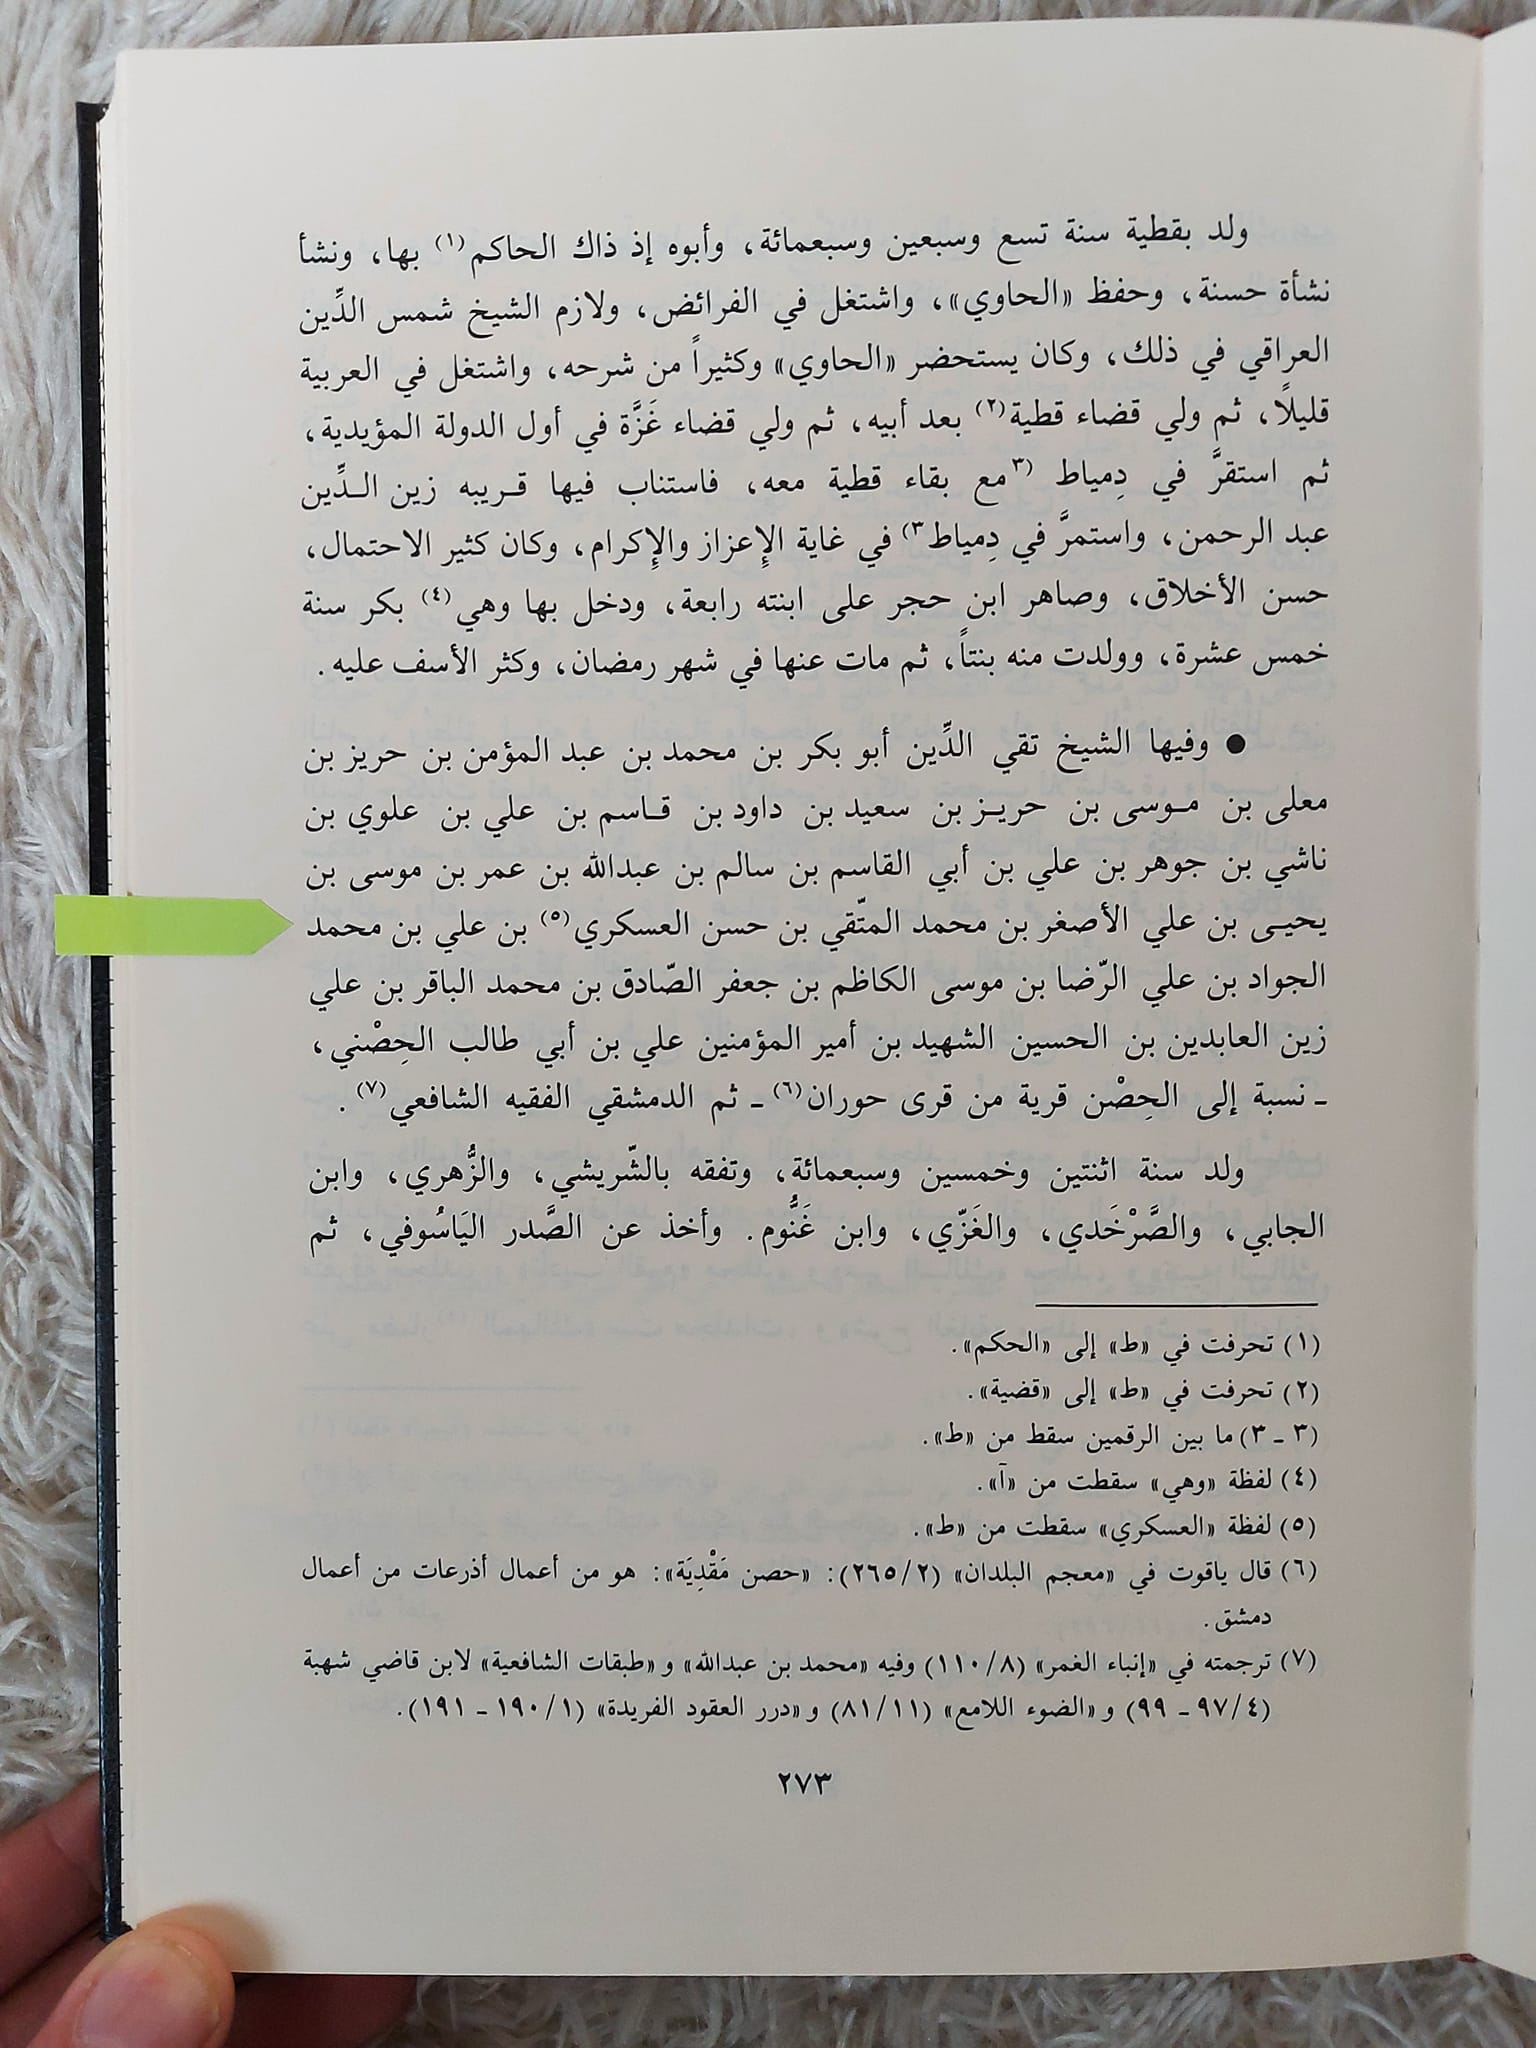 ولد بقطية سنة تسع وسبعين وسبعمائة، وأبوه إذ ذاك الحاكم(١) بها، ونشأ
نشأة حسنة، وحفظ «الحاوي»، واشتغل في الفرائض، ولازم الشيخ شمس الدِّين
العراقي في ذلك، وكان يستحضر «الحاوي» وكثيراً من شرحه، واشتغل في العربية
قليلًا، ثم ولي قضاء قطية(٢) بعد أبيه، ثم ولي قضاء غَزَّة في أول الدولة المؤيدية،
ثم استقرَّ في دِمياط (٣مع بقاء قطية معه، فاستناب فيها قريبه زين الدِّين
عبد الرحمن، واستمرَّ في دِمياط٣) في غاية الإِعزاز والإِكرام، وكان كثير الاحتمال،
حسن الأخلاق، وصاهر ابن حجر على ابنته رابعة، ودخل بها وهي(٤) بكر سنة
خمس عشرة، وولدت منه بنتاً، ثم مات عنها في شهر رمضان، وكثر الأسف عليه.
● وفيها الشيخ تقي الدِّين أبو بكر بن محمد بن عبد المؤمن بن حريز بن
معلى بن موسى بن حريز بن سعيد بن داود بن قاسم بن علي بن علوي بن
ناشي بن جوهر بن علي بن أبي القاسم بن سالم بن عبدالله بن عمر بن موسى بن
يحيى بن علي الأصغر بن محمد المتّقي بن حسن العسكري(٥) بن علي بن محمد
الجواد بن علي الرّضا بن موسى الكاظم بن جعفر الصّادق بن محمد الباقر بن علي
زين العابدين بن الحسين الشهيد بن أمير المؤمنين علي بن أبي طالب الحِصْني،
ـ نسبة إلى الحِصْن قرية من قرى حوران(٦) ـ ثم الدمشقي الفقيه الشافعي(٧).
ولد سنة اثنتين وخمسين وسبعمائة، وتفقه بالشّريشي، والزُّهري، وابن
الجابي، والصَّرْخَدي، والغَزّي، وابن غَنُّوم. وأخذ عن الصَّدر اليَاسُوفي، ثم
(١) تحرفت في «ط» إلى «الحكم».
(٢) تحرفت في «ط» إلى «قضية».
(٣ ـ ٣) ما بين الرقمين سقط من «ط».
(٤) لفظة «وهي» سقطت من «آ».
(٥) لفظة «العسكري» سقطت من «ط».
(٦) قال ياقوت في «معجم البلدان» (٢/٢٦٥): «حصن مَقْدِيَة»: هو من أعمال أذرعات من أعمال
دمشق.
(٧) ترجمته في «إنباء الغمر» (٨/١١٠) وفيه «محمد بن عبدالله» و«طبقات الشافعية» لابن قاضي شهبة
(٤/٩٧ ـ ٩٩) و«الضوء اللامع» (١١/٨١) و«درر العقود الفريدة» (١/١٩٠ ـ ١٩١).
٢٧٣